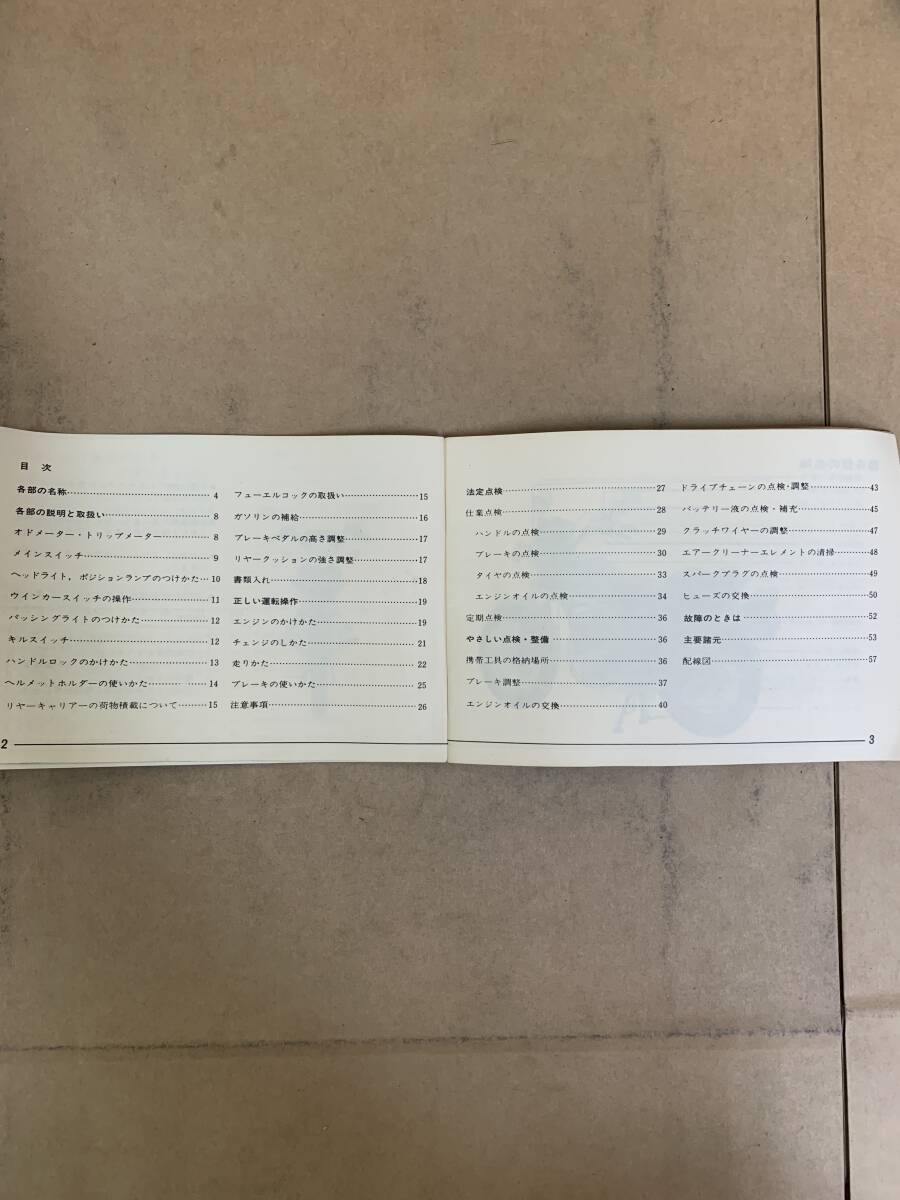 目 次
各部の名称…………………………4
各部の説明と取扱い…………………8
オドメーター・トリップメーター…………8
メインスイッチ………………………9
ヘッドライト, ポジションランプのつけかた…10
ウインカースイッチの操作……………11
パッシングライトのつけかた……………12
キルスイッチ…………………………12
ハンドルロックのかけかた………………13
ヘルメットホルダーの使いかた…………14
リヤーキャリアーの荷物積載について……15
フューエルコックの取扱い………………15
ガソリンの補給…………………………16
ブレーキペダルの高さ調整………………17
リヤークッションの強さ調整……………17
書類入れ………………………………18
正しい運転操作…………………………19
エンジンのかけかた……………………19
チェンジのしかた………………………21
走りかた………………………………22
ブレーキの使いかた……………………25
注意事項………………………………26
2
法定点検………………………………27
仕業点検………………………………28
ハンドルの点検…………………………29
ブレーキの点検…………………………30
タイヤの点検……………………………33
エンジンオイルの点検……………………34
定期点検………………………………36
やさしい点検・整備……………………36
携帯工具の格納場所……………………36
ブレーキ調整…………………………37
エンジンオイルの交換…………………40
ドライブチェーンの点検・調整…………43
バッテリー液の点検・補充………………45
クラッチワイヤーの調整…………………47
エアークリーナーエレメントの清掃………48
スパークプラグの点検……………………49
ヒューズの交換…………………………50
故障のときは……………………………52
主要諸元………………………………53
配線図…………………………………57
3